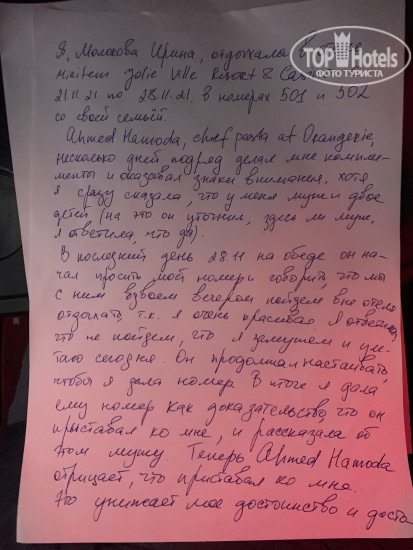 TOP Hotels
ФОТО ТУРИСТА
Я, Молокова Ирина, отдыхала в отеле
Maritim Jolie Ville Resort & Cas
21.11.21 по 28.11.21. в номерах 501 и 502
со своей семьёй.
Ahmed Hamoda, chief pasta at Orangerie,
несколько дней подряд делал мне компли-
менты и оказывал знаки внимания, хотя
я сразу сказала, что у меня муж и двое
детей (на это он уточнил, здесь ли муж,
я ответила, что да).
В последний день 28.11 на обеде он на-
чал просить мой номер и говорить, что мы
с ним вдвоем вечером пойдем вне отеля
отдыхать, т.к. я очень красивая. Я ответила,
что не пойдем, что я замужем и уле-
таю сегодня. Он продолжал настаивать,
чтобы я дала номер. В итоге я дала
ему номер как доказательство, что он
приставал ко мне, и рассказала об
этом мужу. Теперь Ahmed Hamoda
отрицает, что приставал ко мне.
Это унижает мое достоинство и досто